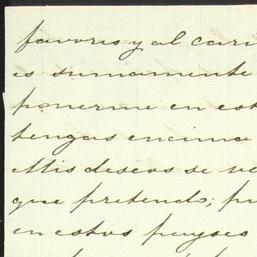 favores y al cari
es sumamente
ponerme en est
tengas encima
Mis deseos se ve
que pretendo; pu
en estos payses